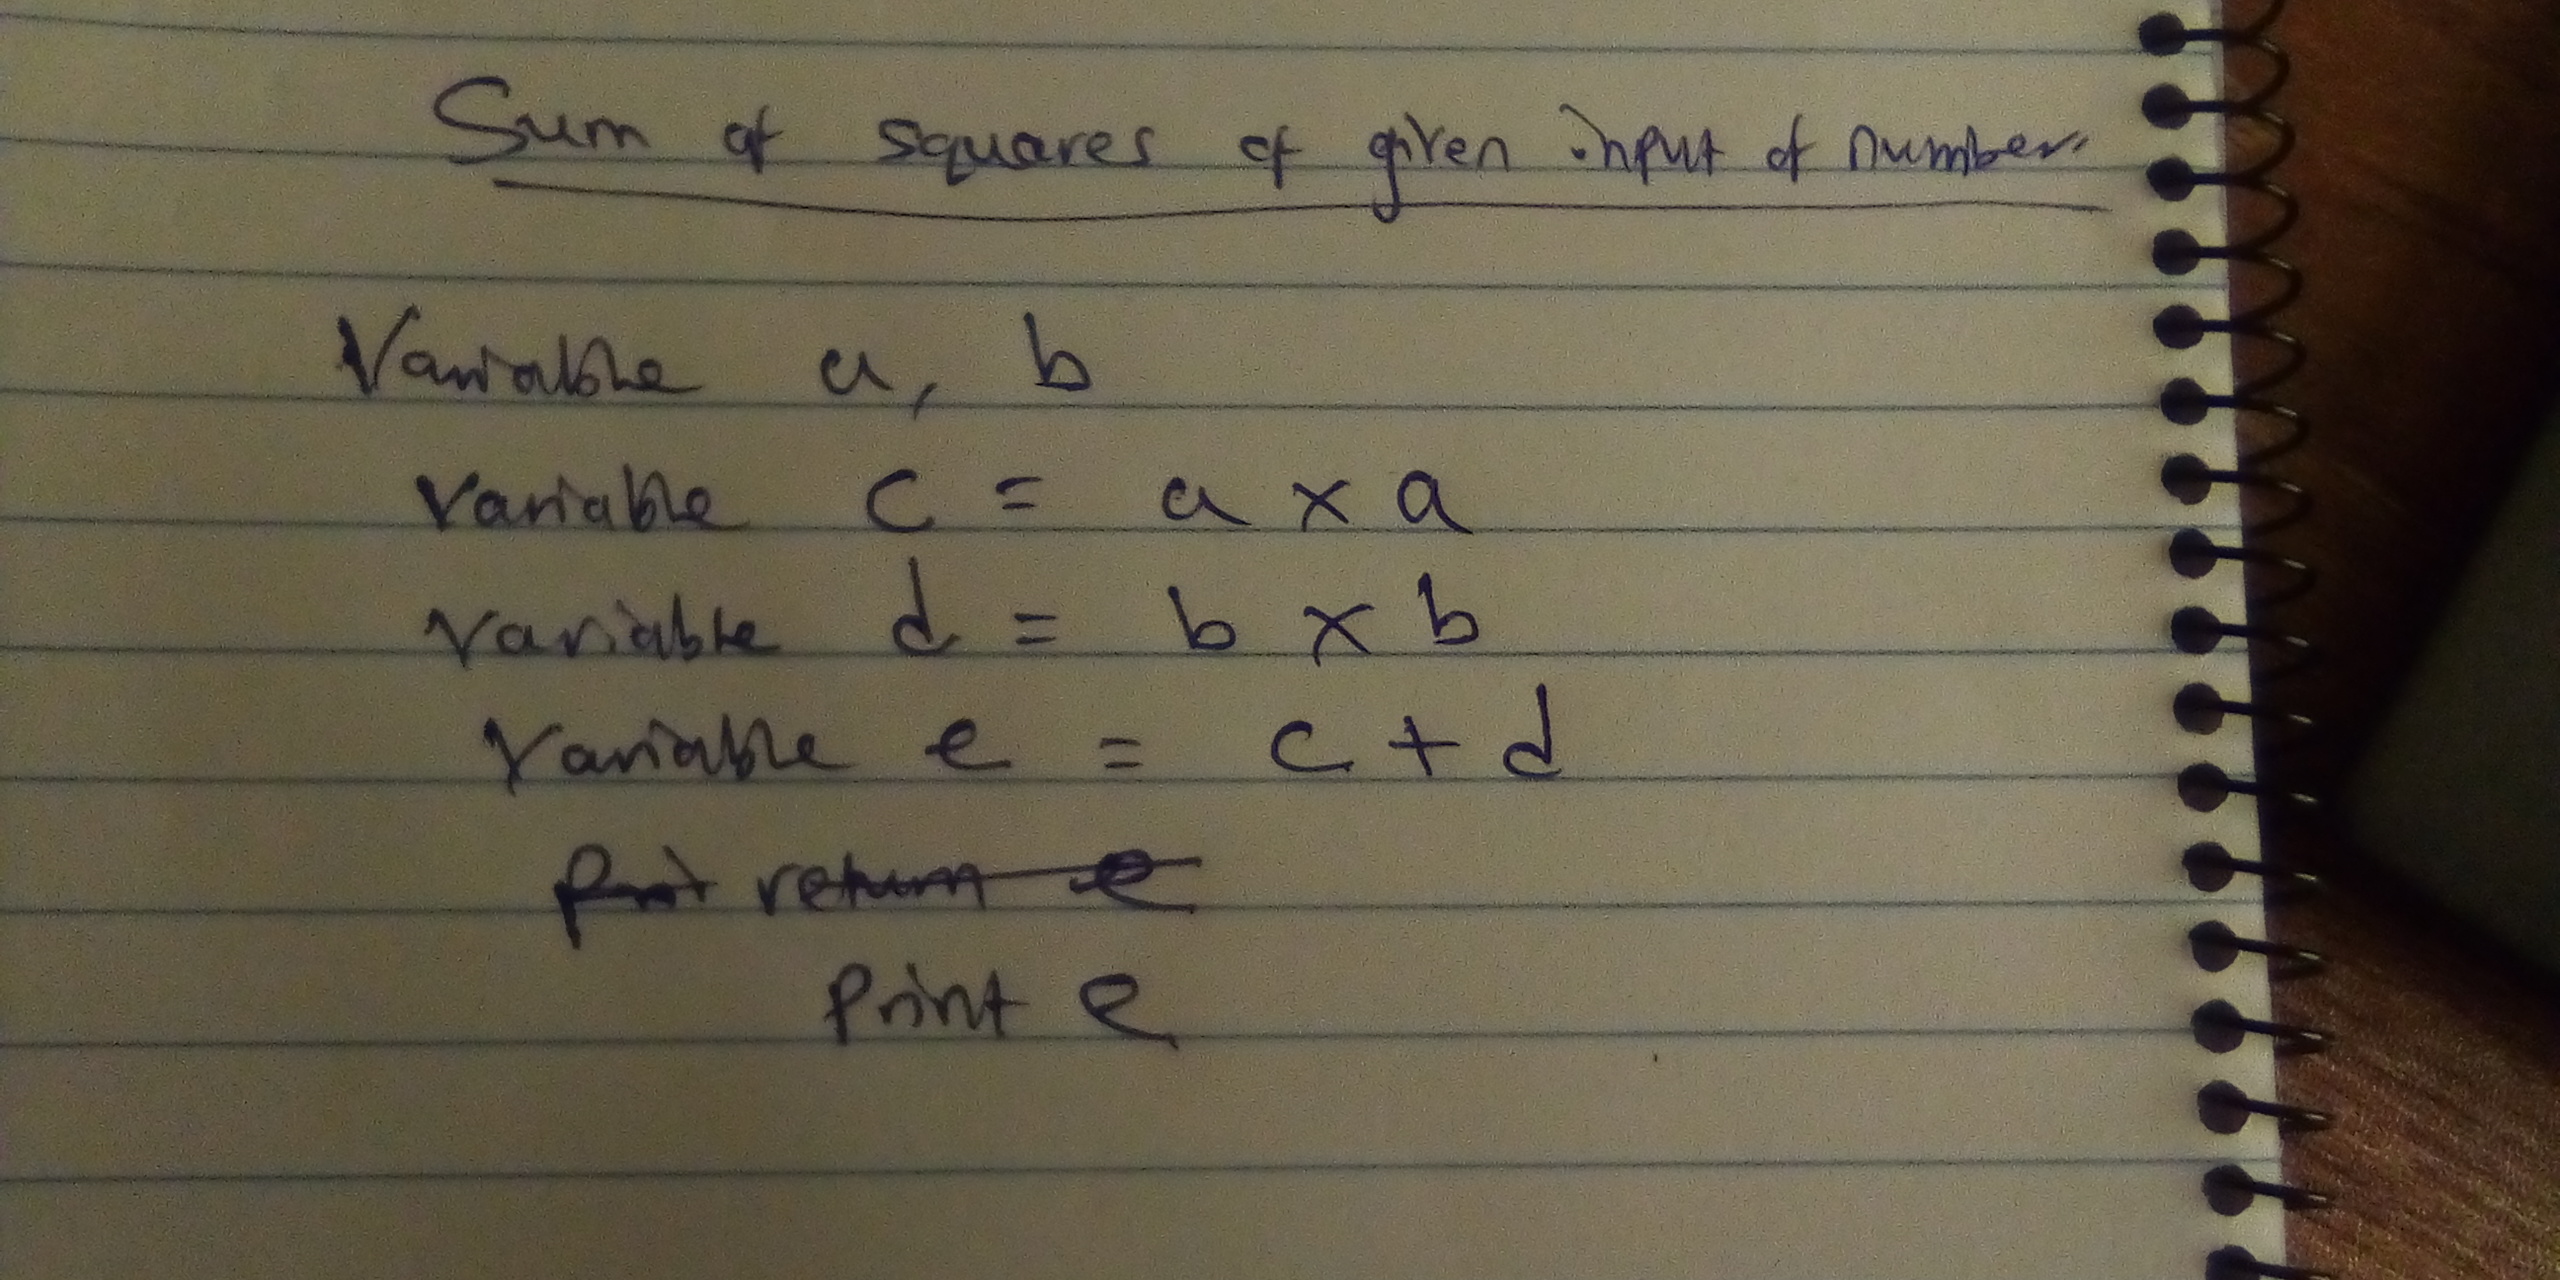 Sum of squares of given input of number
Variable a, b
Variable c = a × a
Variable d = b × b
Variable e = c + d
Print return e
Print e